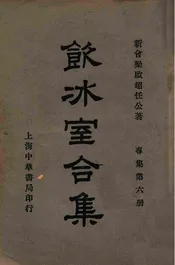 新會梁啟超任公著
專集第六册
飲冰室合集
上海中華書局印行